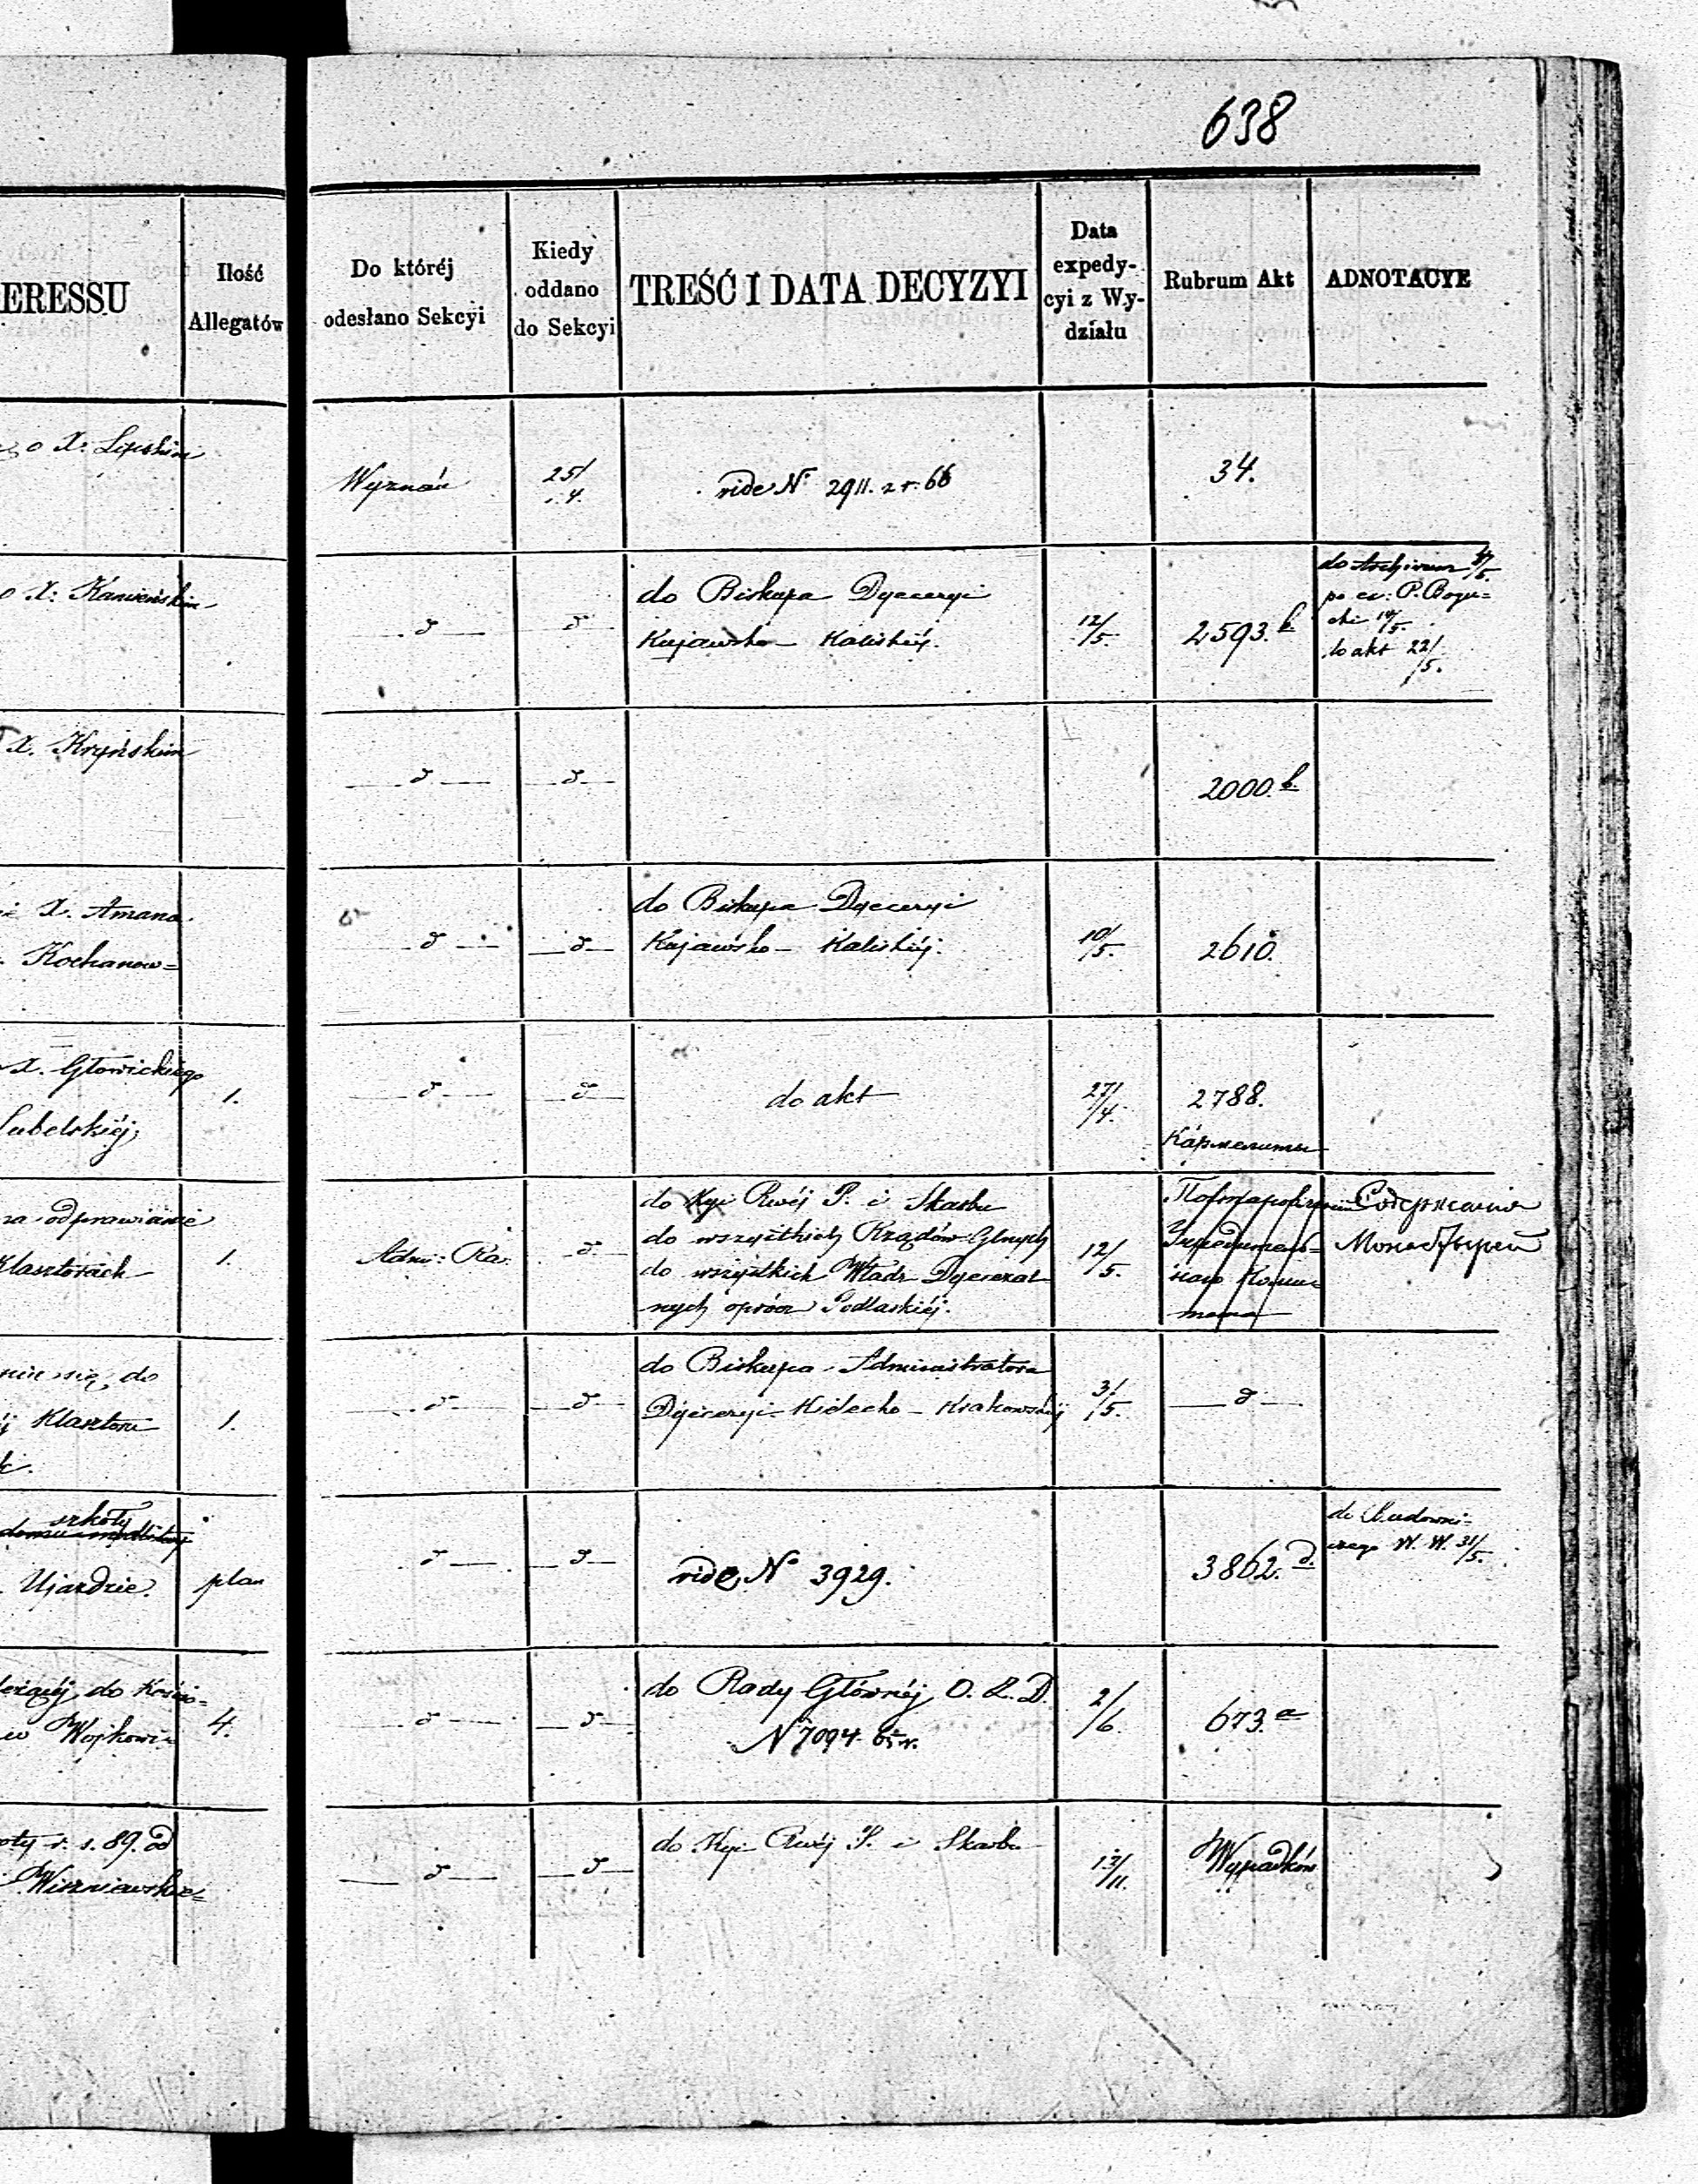 638
ERESSU
Ilość
Allegatów
Do któréj
odesłano Sekcyi
Kiedy
oddano
do Sekcyi
TREŚĆ I DATA DECYZYI
Data
expedy-
cyi z Wy-
działu
Rubrum Akt
ADNOTACYE
o X: Lipskim
Wyznań
25/4.
vide N° 2911. z r. 66
34.
o X: Kamieńskim
d
d
do Biskupa Dyecezyi
Kujawsko-Kaliskiéj.
12/5.
2593. b
do Archiwum
po ex: P. Bogu=
cki 14/5.
do akt 22/5.
X. Kryńskim
d
d
2000. b.
X. Amana
Kochanow=
d
d
do Biskupa Dyecezyi
Kujawsko-Kaliskiéj.
10/5.
2610.
X. Głowickiego
Lubelskiéj;
1.
d
d
do akt
27/4.
2788.
Кармелиты
za odprawianie
Klasztorach
1.
Adm: Ra.
d
do Kyi Rwéj P. i Skarbu
do wszystkich Rządów Glnych
do wszystkich Władz Dyecezal
nych oprócz Podlaskiéj.
12/5.
Содержание
Монастырей
nie się do
Klasztoru
1.
d
d
do Biskupa Administratora
Dyecezyi Kielecko-Krakowskiéj
31/5.
d
szkoły
domu modlitwy
Ujazdzie.
plan
d
d
vide N° 3929.
3862. d.
do Budowni=
czego W. W. 31/5.
do Kościo=
w Wojkowi
4.
d
d
do Rady Głównéj O. Z. D.
N 7094
2/6.
673. a
r. s. 89. od
Wiszniewskie=
d
d
do Kyi Rwéj P. i Skarbu
13/11.
Wypadków